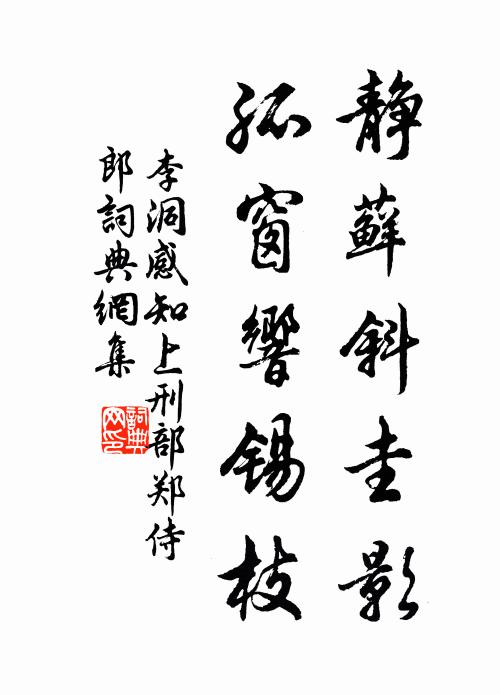 静蘚斜圭影
孤窗響錫枝
李洞感知上刑部郑侍
郎詞典網集
詞典
网印